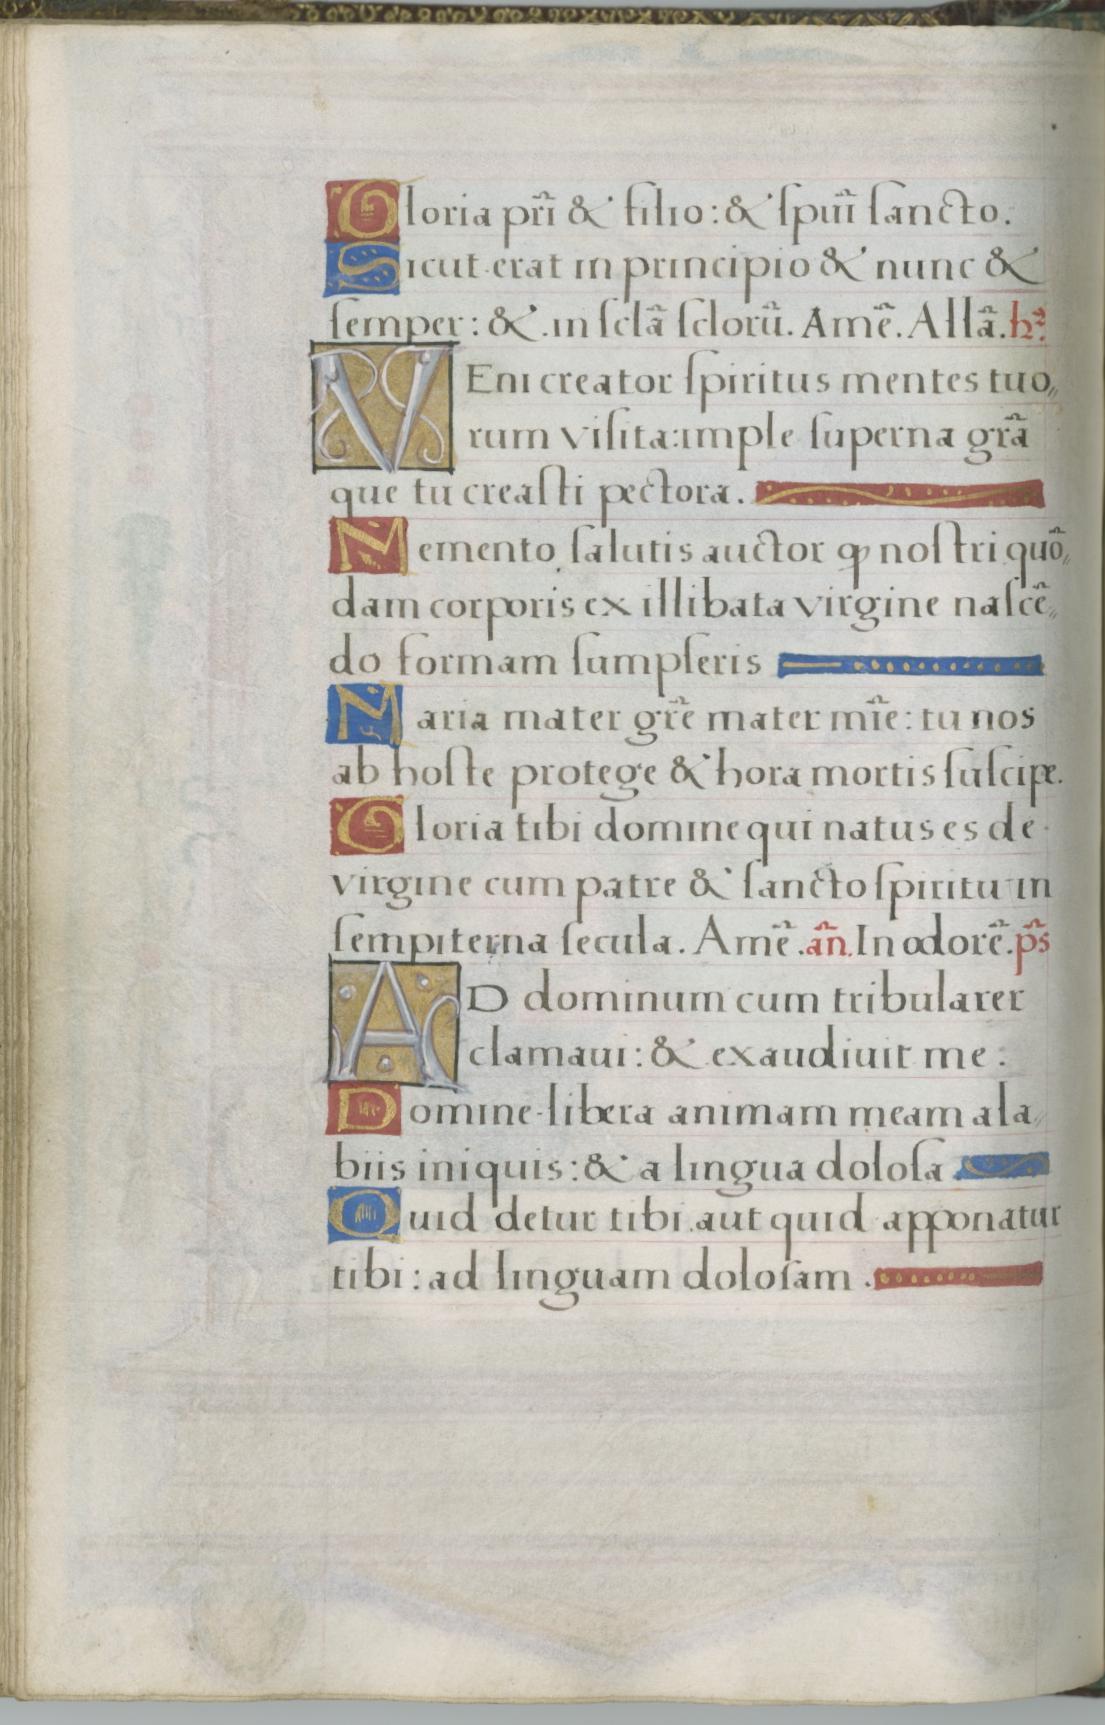 Gloria pr̃i & filio: & ſpũi ſancto.
Sicut erat in principio & nunc &
ſemper: & in ſclã ſclorũ. Amẽ. Allã. hꝫ̃.
VEni creator ſpiritus mentes tuo„
rum viſita: imple ſuperna gr̃a
que tu creaſti pectora.
Memento ſalutis auctor ꝙ noſtri quõ„
dam corporis ex illibata virgine naſcẽ„
do formam ſumpſeris
Maria mater gr̃e mater mĩe: tu nos
ab hoſte protege & hora mortis ſuſcipe.
Gloria tibi domine qui natus es de
virgine cum patre & ſancto ſpiritu in
ſempiterna ſecula. Amẽ. añ. In odorẽ. p̃s
AD dominum cum tribularer
clamaui: & exaudiuit me:
Domine libera animam meam a la„
biis iniquis: & a lingua doloſa
Quid detur tibi aut quid apponatur
tibi: ad linguam doloſam.